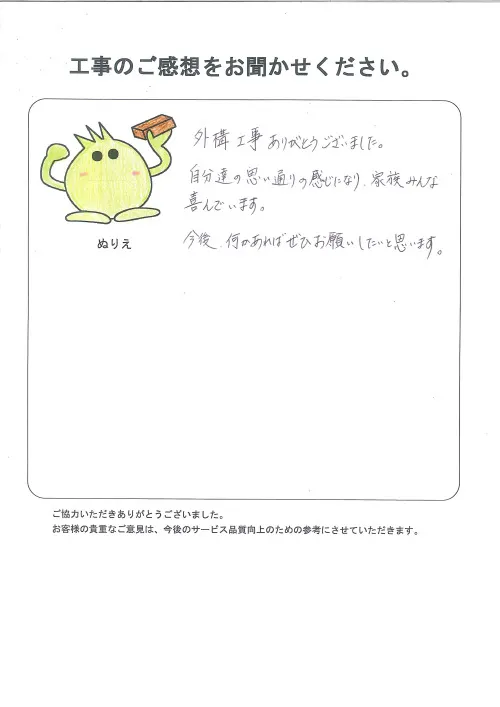 工事のご感想をお聞かせください。
外構工事ありがとうございました。
自分達の思い通りの感じになり、家族みんな
喜んでいます。
今後、何かあればぜひお願いしたいと思います。
ぬりえ
ご協力いただきありがとうございました。
お客様の貴重なご意見は、今後のサービス品質向上のための参考にさせていただきます。